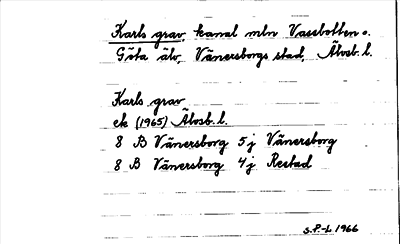 Karls grav, kanal mln Vassbotten o.
Göta älv, Vänersborgs stad, Älvsb. l.
Karls grav
ek (1965) Älvsb. l.
8 B Vänersborg 5 j Vänersborg
8 B Vänersborg 4 j Restad
S.P-L 1966